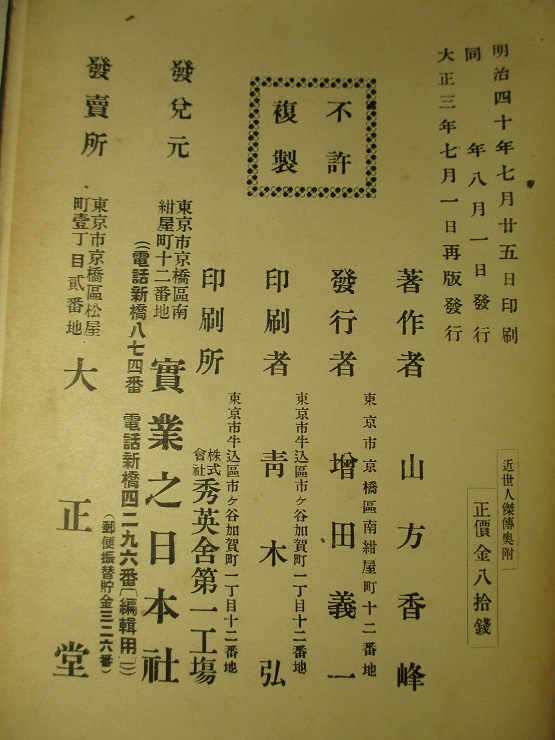 明治四十年七月廿五日印刷
同　年八月一日發行
大正三年七月一日再版發行
近世人傑傳奧附
正價金八拾錢
不許
複製
著作者　山方香峰
東京市京橋區南紺屋町十二番地
發行者　增田義一
東京市牛込區市ケ谷加賀町一丁目十二番地
印刷者　青木弘
東京市牛込區市ケ谷加賀町一丁目十二番地
印刷所　株式會社　秀英舍第一工場
發兌元
東京市京橋區南
紺屋町十二番地
實業之日本社
（電話新橋八七四番　電話新橋四二九六番〔編輯用〕）
（郵便振替貯金三二六番）
發賣所
東京市京橋區松屋
町壹丁目貳番地
大正堂